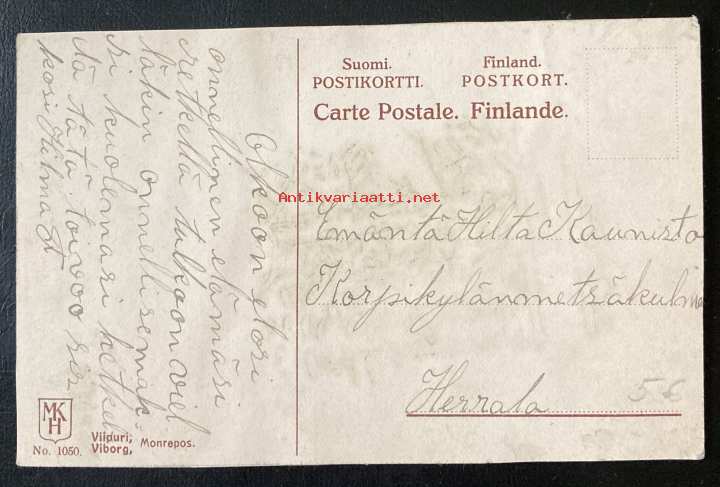 Suomi.
POSTIKORTTI.
Finland.
POSTKORT.
Carte Postale. Finlande.
Antikvariaatti.net
Olkoon elosi
onnellinen elämäsi
retkellä tulkoon viel
täkin onnellisemak-
si kuolemasi hetkel
tä tätä toivoo sis
kosi Hilma
Emäntä Hilta Kaunisto
Korpikylänmetsäkulma
Herrala
56
MKH
No. 1050.
Viipuri,
Viborg,
Monrepos.